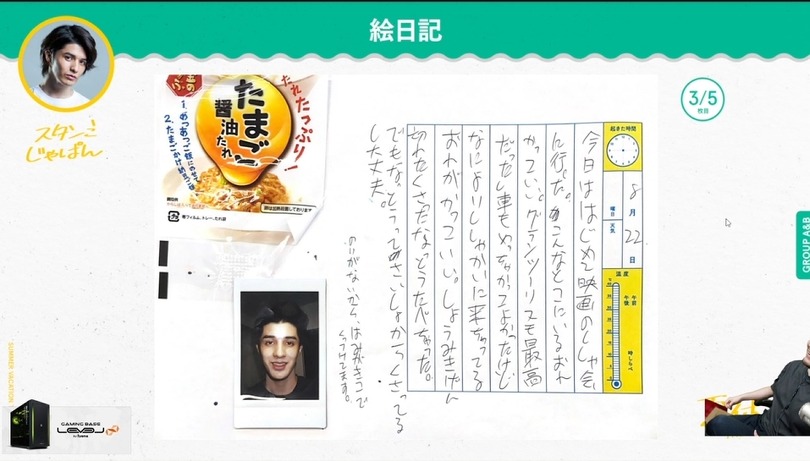 絵日記
スタンミ
じゃぱん
3/5
枚目
GROUP A&B
たれたっぷり!
たまご
醤油たれ
1. めっあつご飯にのせて
2. たまごかけ納豆ご飯
起きた時間
8月22日
曜日
天気
温度
午前
午後
時しらべ
今日ははじめて映画のししゃ会
に行った。こんなとこにいるおれ
かっていい。グランツーリスモ最高
だった。車もめっちゃかってよかったけど
なによりししゃかいに来ちゃってる
おれがかっこいい。しょうみきげん
切れてくさったなっとうたべちゃった。
でもなっとうってさいしょからくさってる
し大丈夫。
のりがないから、はみがきこで
くっつけてます。
SUMMER VACATION
GAMING BASE
LEVEL∞